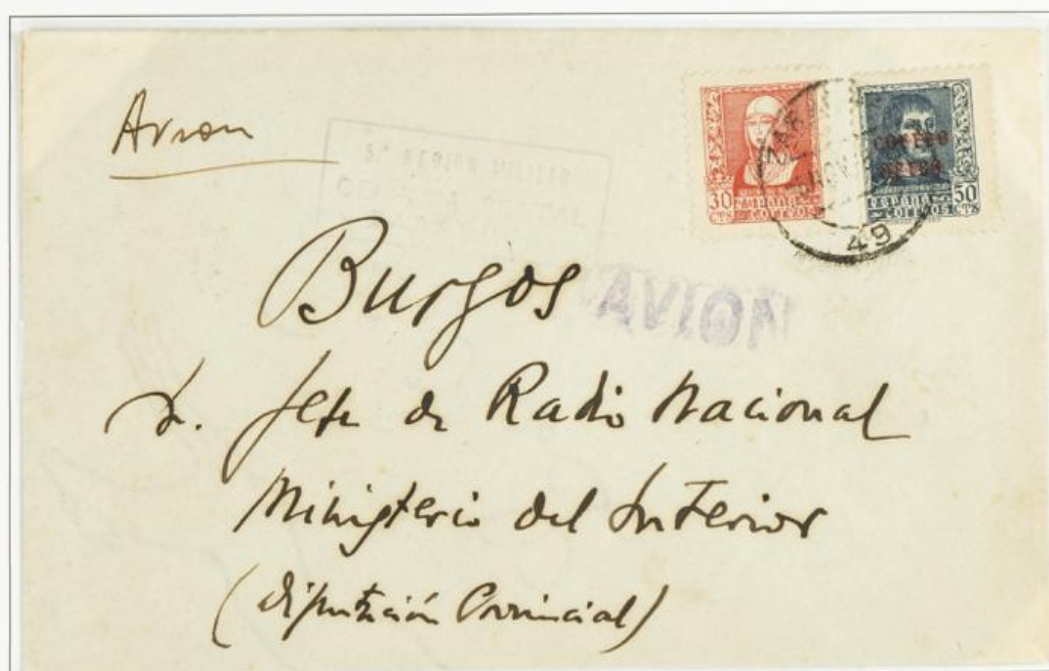 Avion
5ª REGION MILITAR
POSTAL
30 CTS
ESPAÑA
CORREOS
CORREO
AEREO
50 CTS
ESPAÑA
CORREOS
49
AVION
Burgos
Sr. Jefe de Radio Nacional
Ministerio del Interior
(Diputación Provincial)